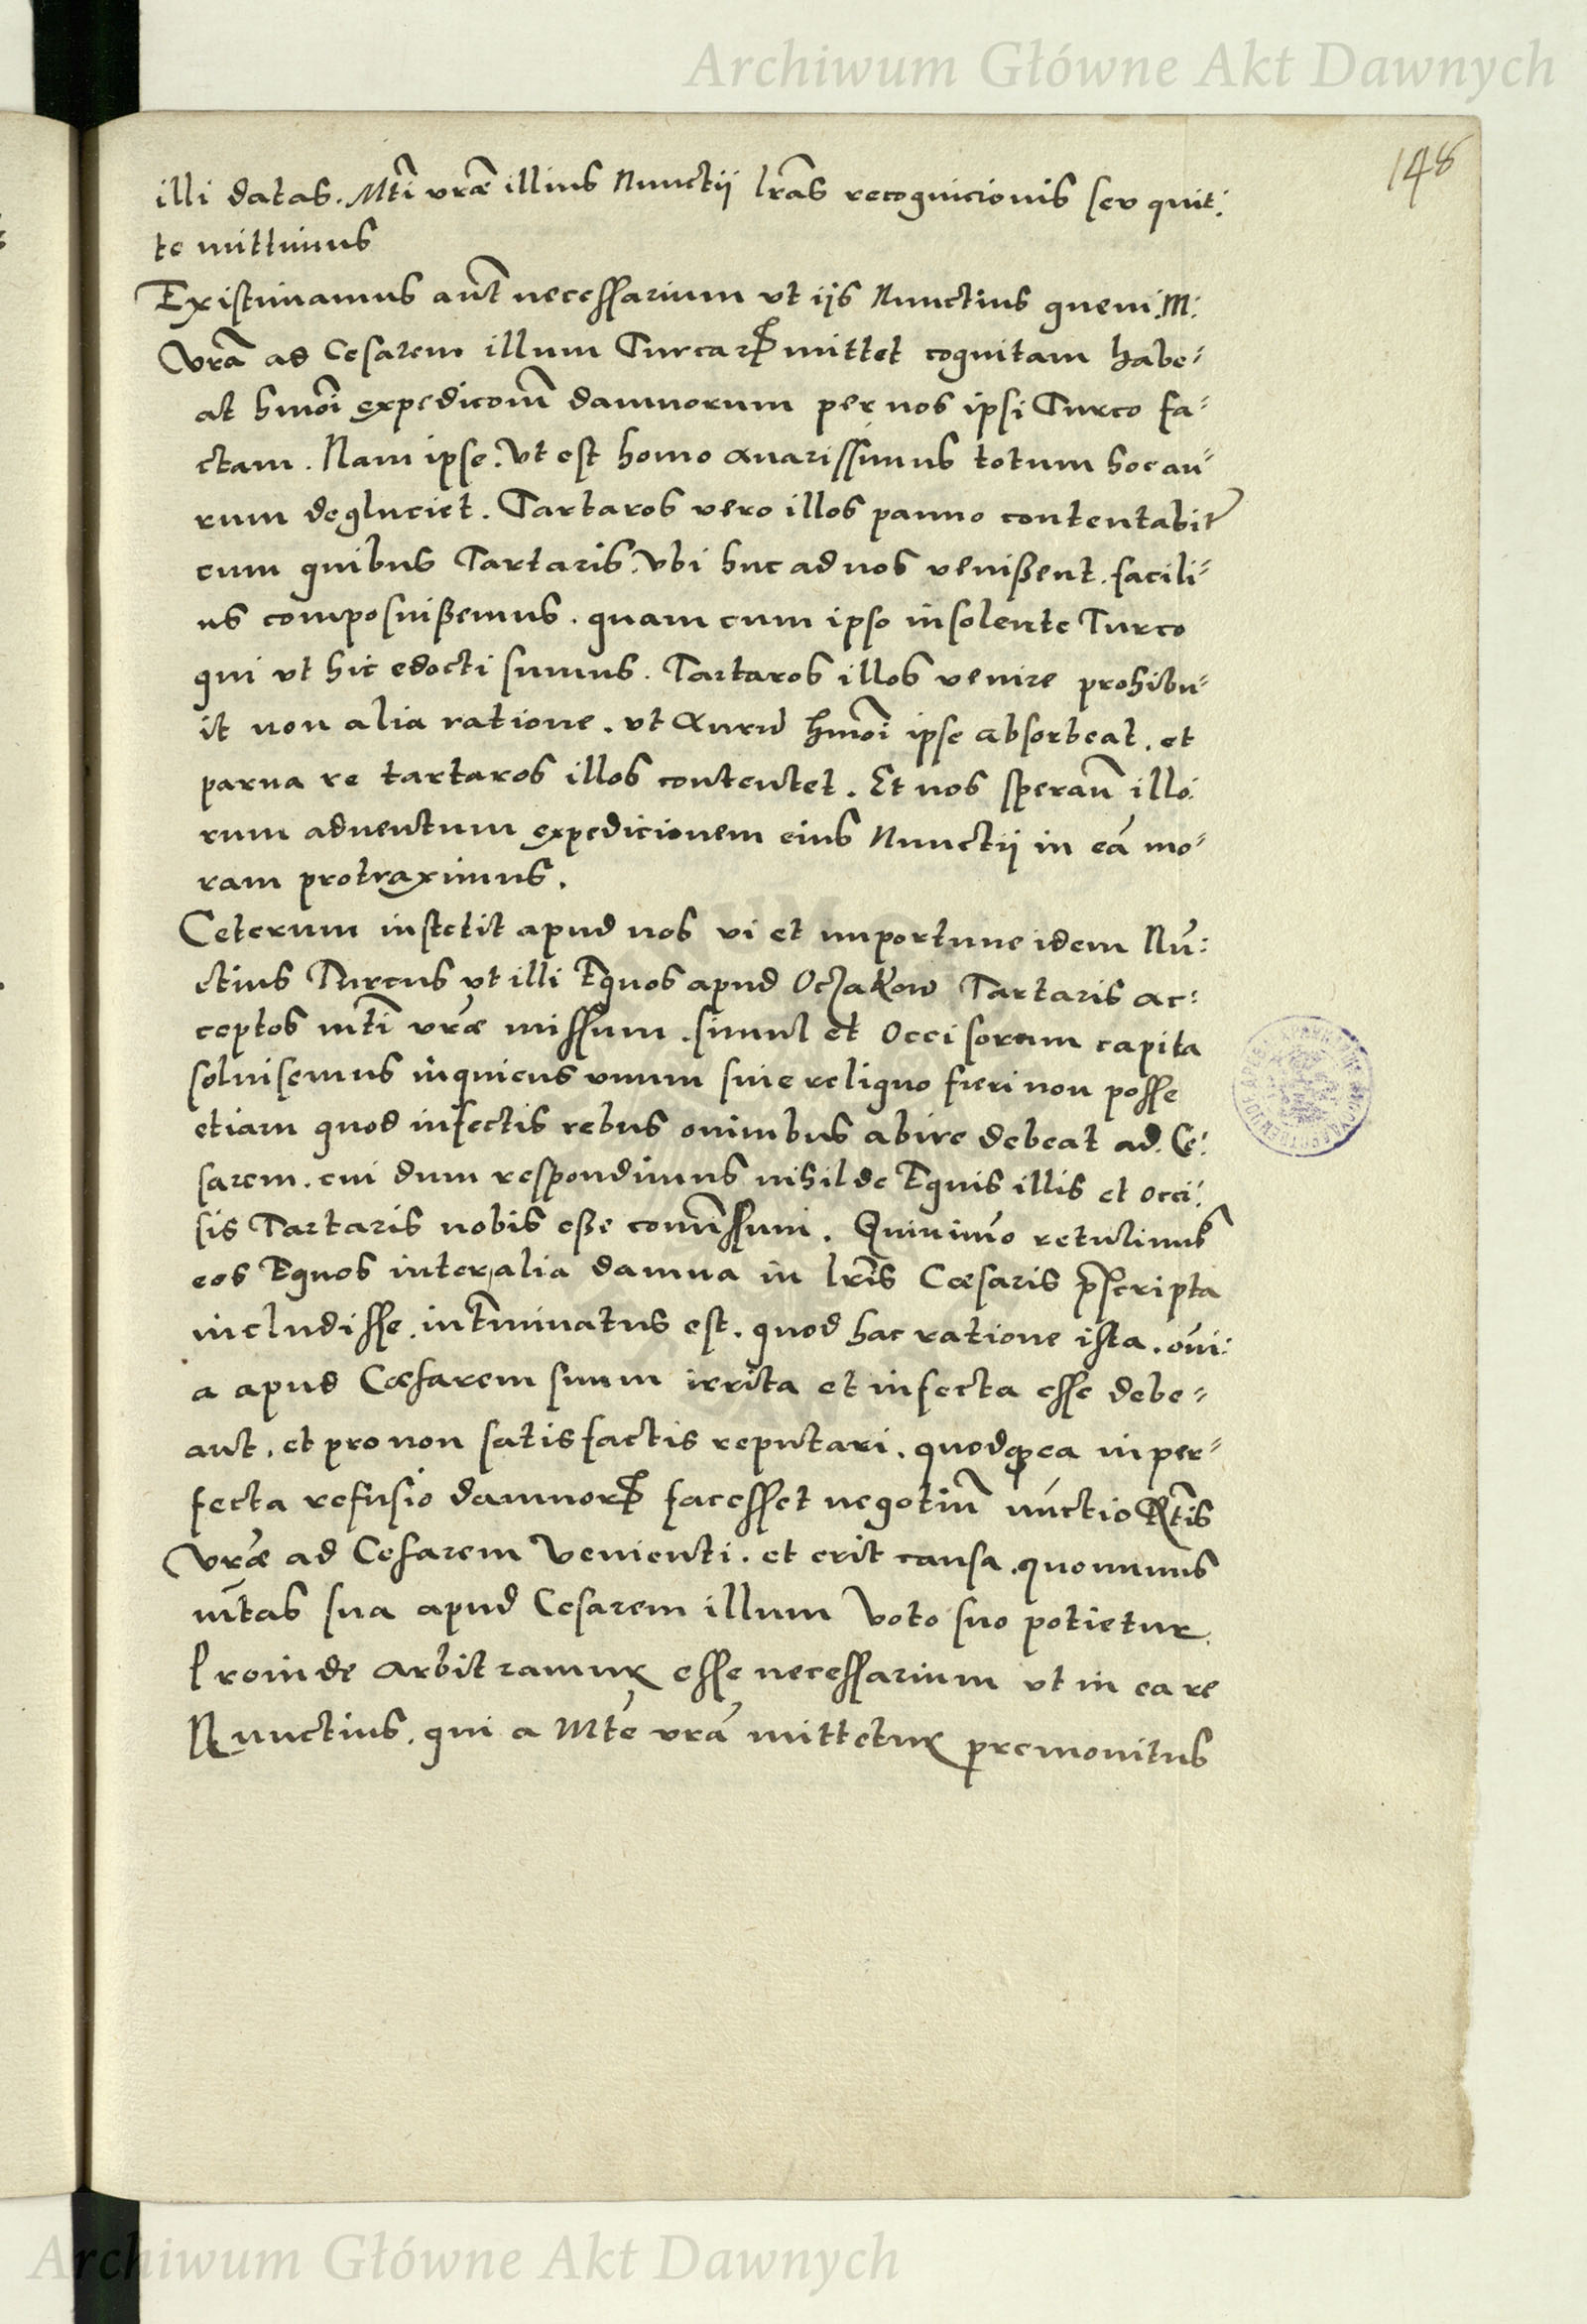 Archiwum Główne Akt Dawnych
148
illi datas. Mti vrae illius Nunctii lras recognicionis seu quit:
te mittimus
Existimamus aut necessarium vt iis Nunctius quem M:
vra ad Cesarem illum Turcarꝝ mittet cognitam habe⸗
at hmoi expedicom damnorum per nos ipsi Turco fa⸗
ctam. Nam ipse. vt est homo auarissimus totum hoc au⸗
rum degluciet. Tartaros vero illos panno contentabit
cum quibus Tartaris. vbi huc ad nos venißent. facili⸗
us composuißemus. quam cum ipso insolente Turco
qui vt hic edocti sumus. Tartaros illos venire prohibu⸗
it non alia ratione. vt Aurū hmoi ipse absorbeat. et
parua re tartaros illos contentet. Et nos speran illo:
rum aduentum expedicionem eius Nunctii in eā mo⸗
ram protraximus.
Ceterum institit apud nos vi et importune idem Nū:
ctius Turcus vt illi Equos apud Oczakow Tartaris ac:
ceptos mti vrae missum. simul et Occisorum capita
soluisemus inquiens vnum sine reliquo fieri non posse
etiam quod infectis rebus omnibus abire debeat ad Ce:
sarem. cui dum respondimus nihil de Equis illis et occi:
sis Tartaris nobis eße comissum. Quinimo retulimus
eos Equos inter alia damna in lris Caesaris pscripta
includisse. intminatus est. quod hac ratione ista. oni:
a apud Caesarem suum irrita et infecta esse debe⸗
ant. et pro non satisfactis reputari. quodqꝫ ea inper⸗
fecta refusio damnorꝝ facesset negotiū nūctio Rtis
vrae ad Cesarem venienti. et erit causa. quominus
mtas sua apud Cesarem illum voto suo potietur.
Proinde arbitramur esse necessarium vt in ea re
Nunctius. qui a Mte vra mittetur premonitus
Archiwum Główne Akt Dawnych